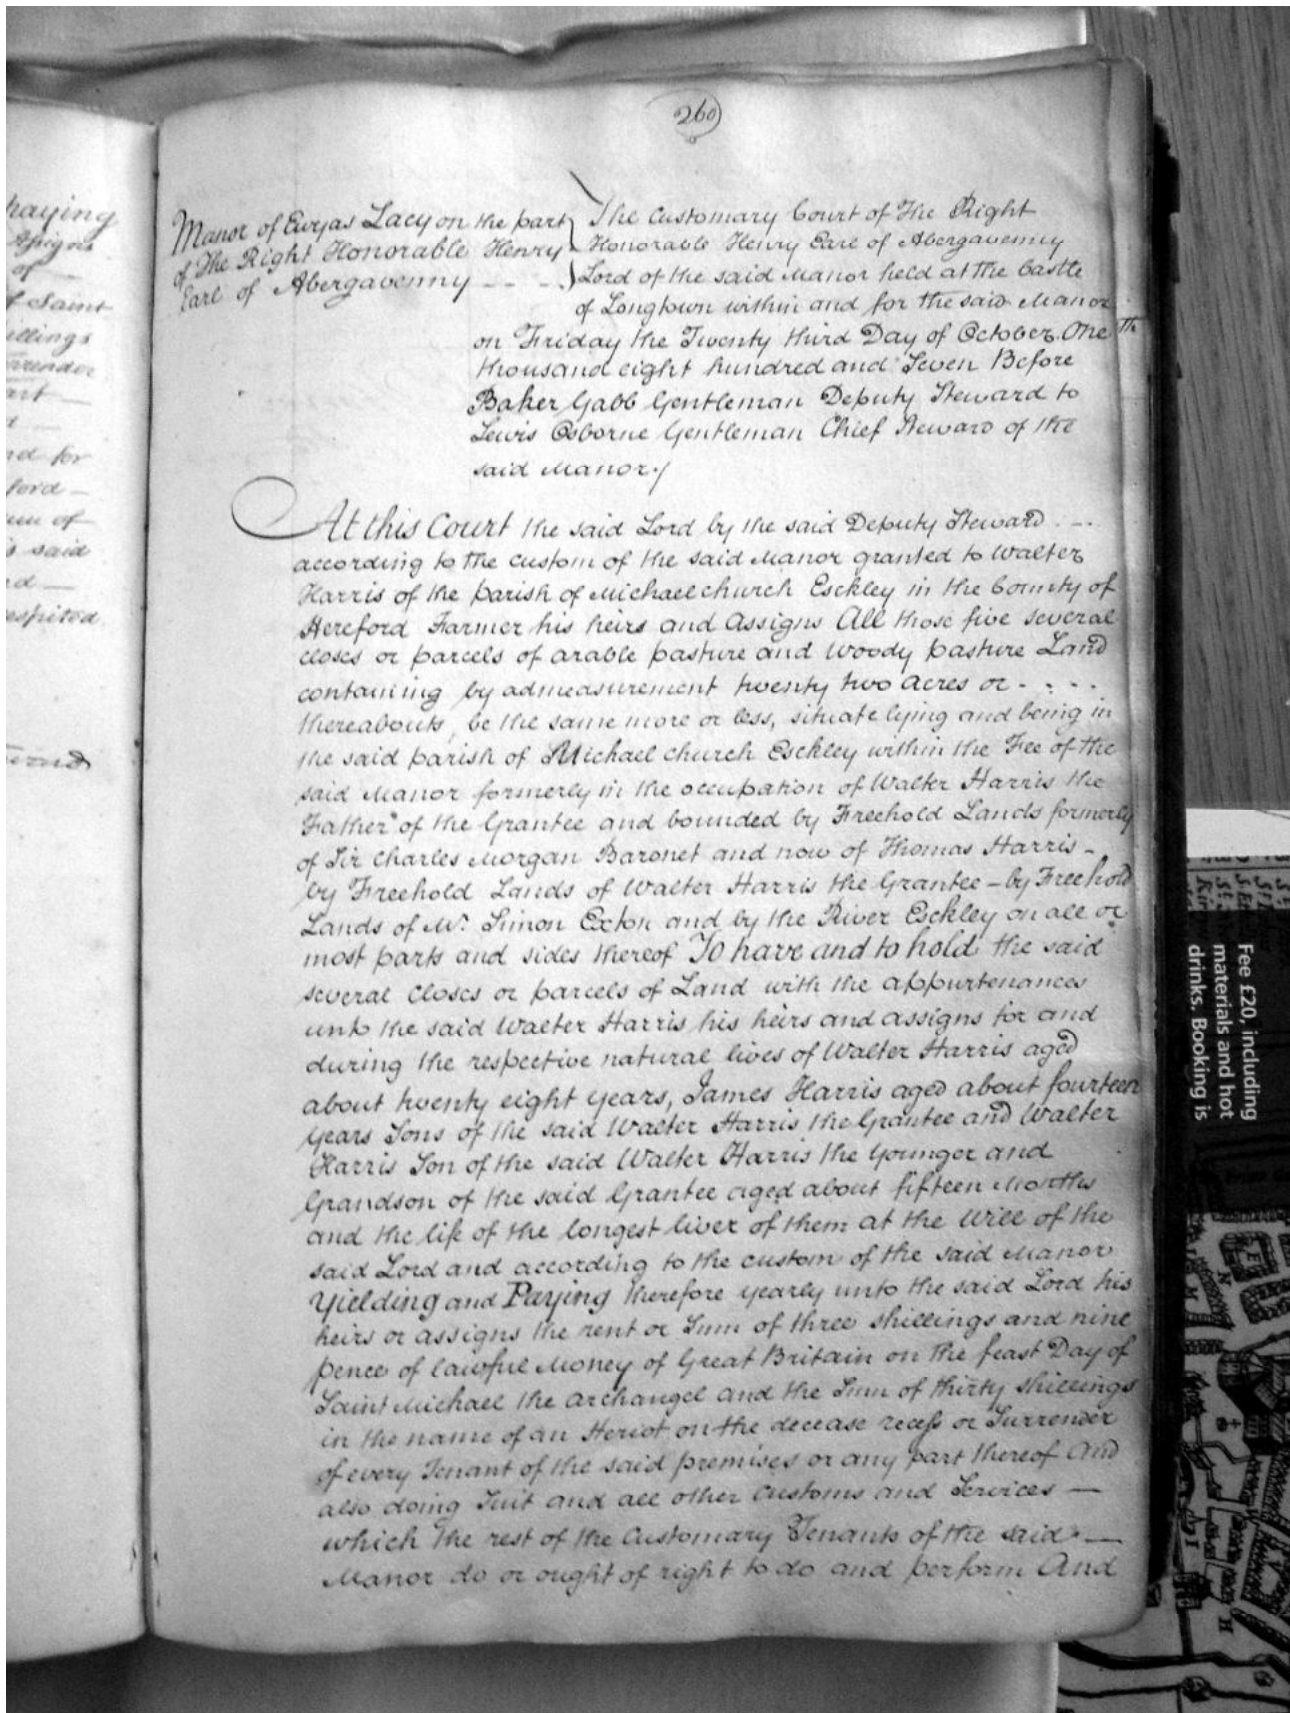 260
Manor of Ewyas Lacy on the part
of The Right Honorable Henry
Earl of Abergavenny - - -
The Customary Court of The Right
Honorable Henry Earl of Abergavenny
Lord of the said Manor held at the Castle
of Longtown within and for the said Manor
on Friday the Twenty third Day of October One
thousand eight hundred and Seven Before
Baker Gabb Gentleman Deputy Steward to
Lewis Osborne Gentleman Chief Steward of the
said Manor./
At this Court the said Lord by the said Deputy Steward - -
according to the custom of the said Manor granted to Walter
Harris of the parish of Michaelchurch Esckley in the County of
Hereford Farmer his heirs and Assigns All those five several
closes or parcels of arable pasture and Woody pasture Land
containing by admeasurement twenty two Acres or - - - -
thereabouts, be the same more or less, situate lying and being in
the said parish of Michael church Esckley within the Fee of the
said Manor formerly in the occupation of Walter Harris the
Father of the Grantee and bounded by Freehold Lands formerly
of Sir Charles Morgan Baronet and now of Thomas Harris -
by Freehold Lands of Walter Harris the Grantee - by Freehold
Lands of Mr. Simon Exton and by the River Esckley on all or
most parts and sides thereof To have and to hold the said
several Closes or parcels of Land with the appurtenances
unto the said Walter Harris his heirs and assigns for and
during the respective natural lives of Walter Harris aged
about twenty eight years, James Harris aged about fourteen
years Sons of the said Walter Harris the Grantee and Walter
Harris Son of the said Walter Harris the Younger and
Grandson of the said Grantee aged about fifteen Months
and the life of the longest liver of them at the Will of the
said Lord and according to the custom of the said Manor
Yielding and Paying therefore yearly unto the said Lord his
heirs or assigns the rent or Sum of three shillings and nine
pence of lawful Money of Great Britain on the feast Day of
Saint Michael the Archangel and the Sum of thirty shillings
in the name of an Heriot on the decease recess or Surrender
of every Tenant of the said premises or any part thereof And
also doing Suit and all other Customs and Services —
which the rest of the Customary Tenants of the said —
Manor do or ought of right to do and perform And
paying
Assigns
of —
Saint
illings
rrender
art —
nd for
ford —
um of
said
espited
Fee £20, including
materials and hot
drinks. Booking is